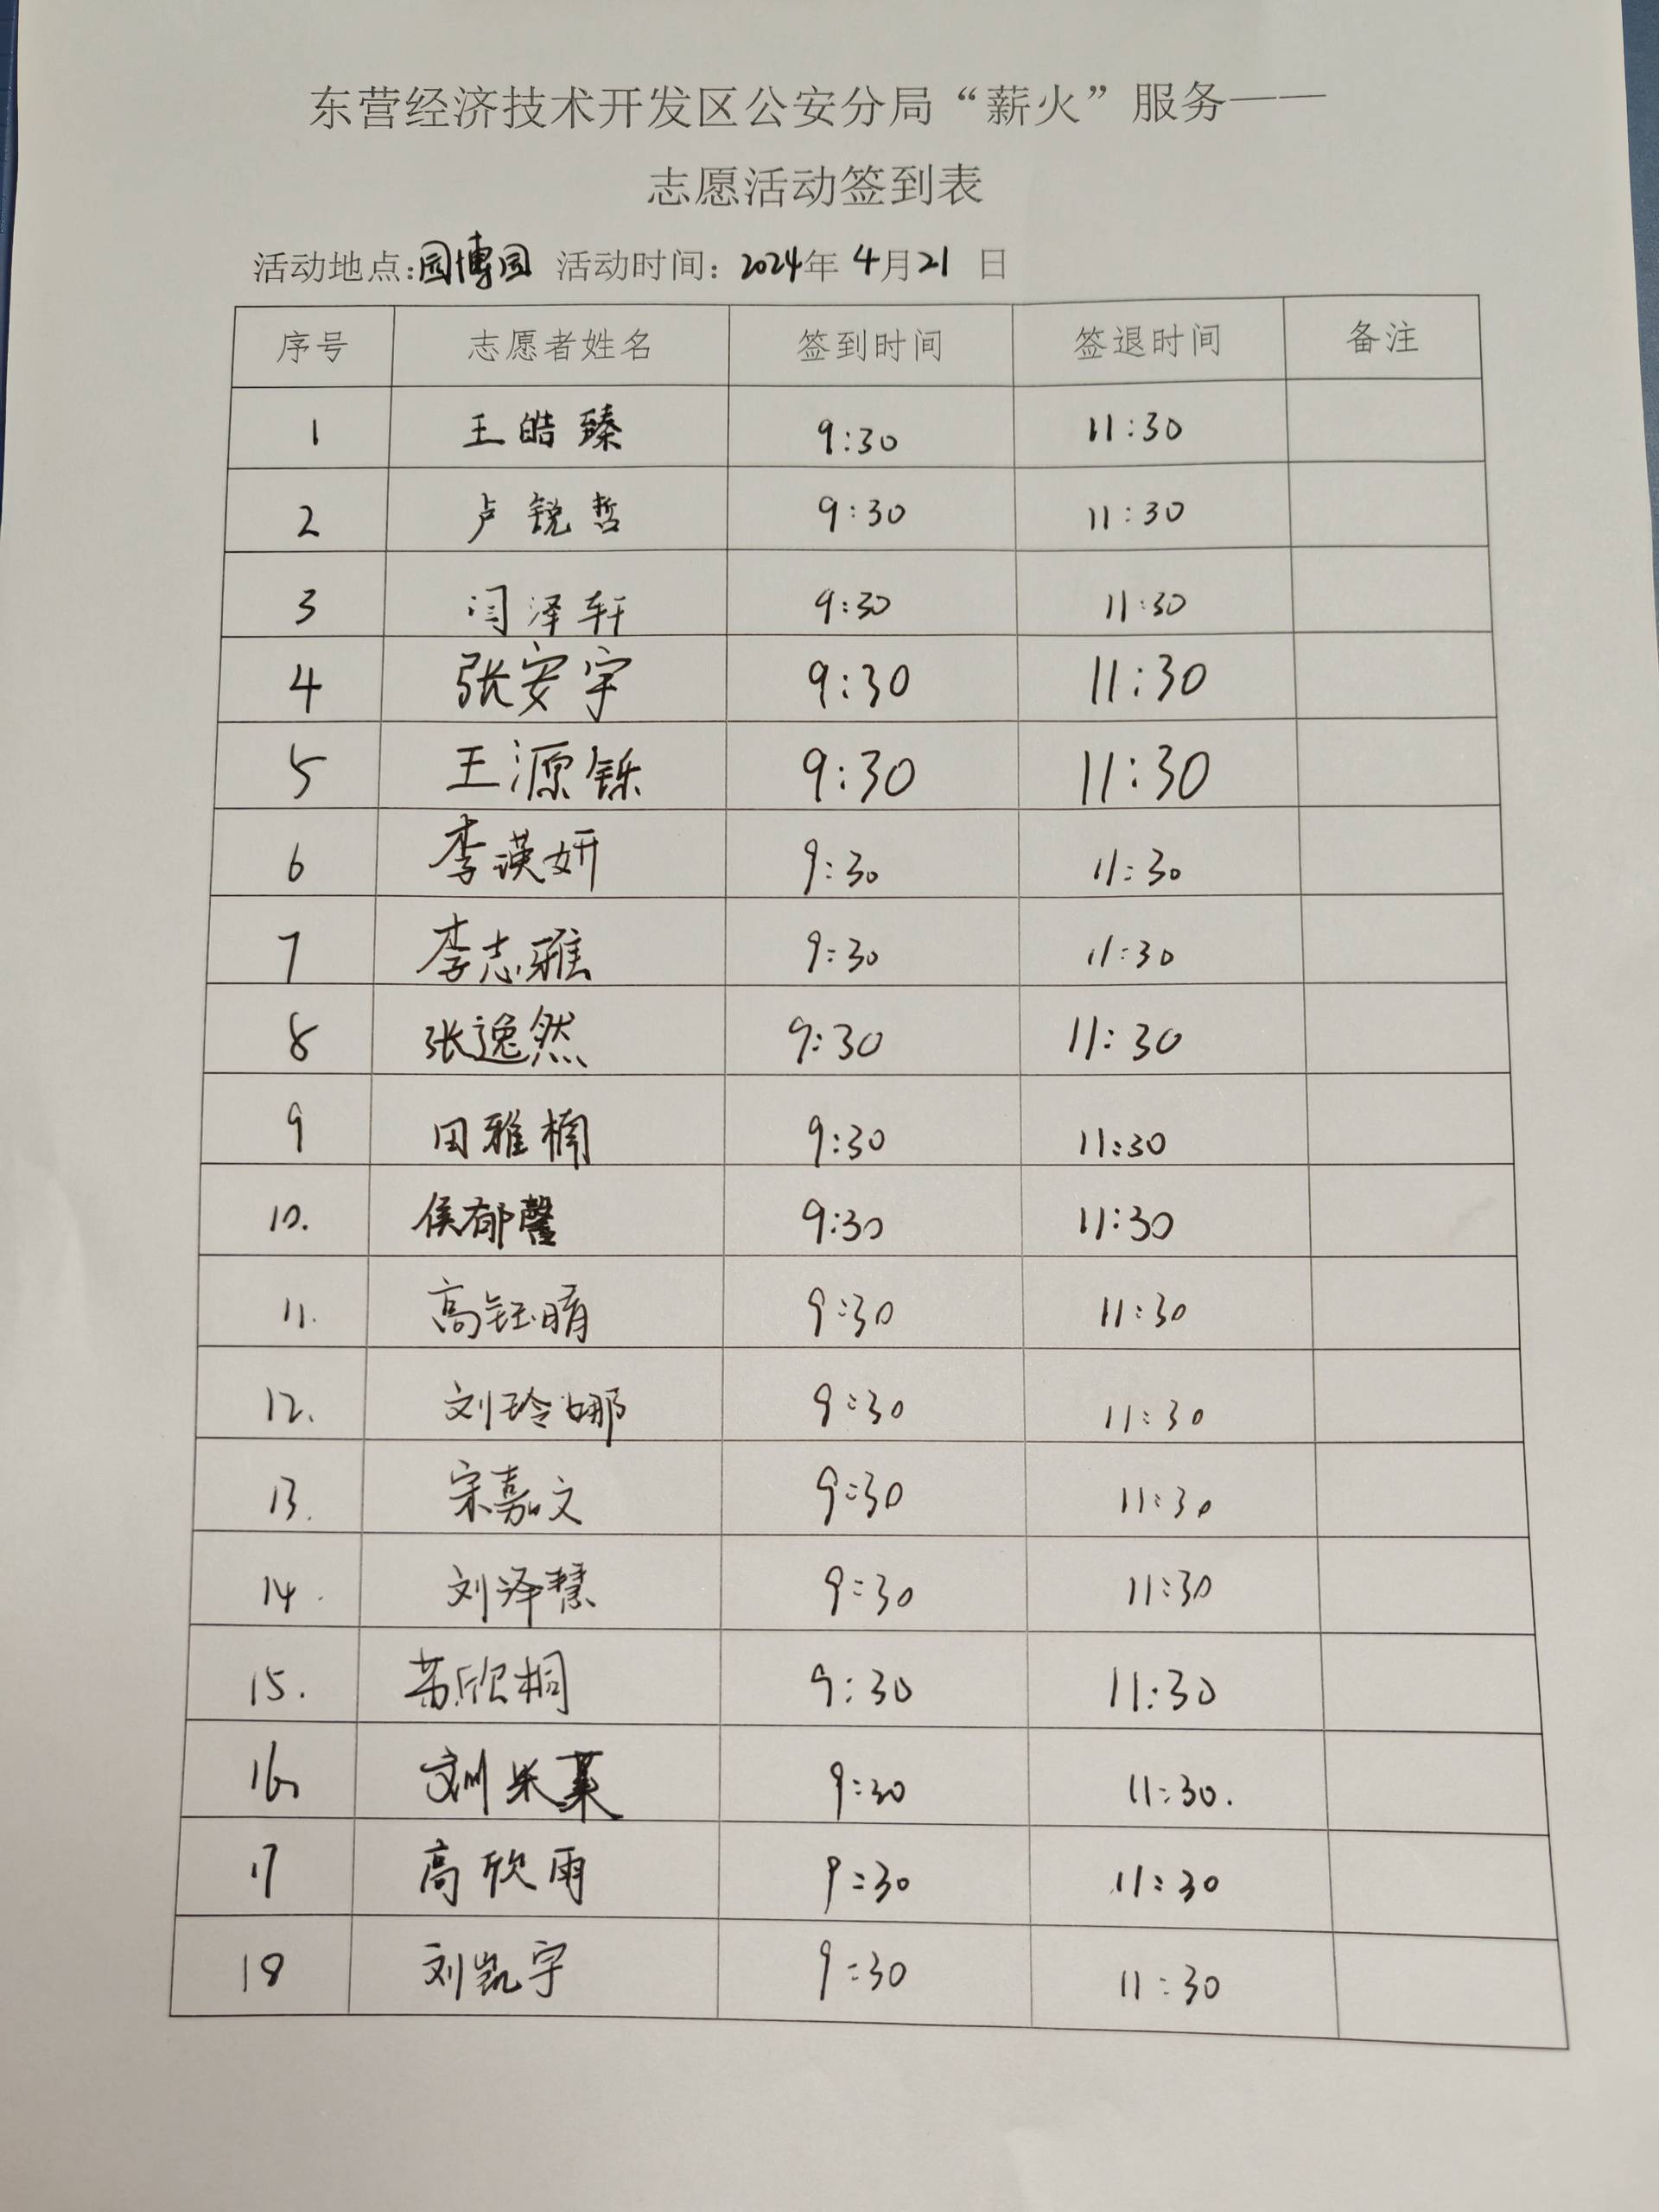 东营经济技术开发区公安分局“薪火”服务——
志愿活动签到表
活动地点:园博园 活动时间：2024年 4月21 日
序号 志愿者姓名 签到时间 签退时间 备注
1 王皓臻 9:30 11:30
2 卢锐哲 9:30 11:30
3 闫泽轩 9:30 11:30
4 张安宇 9:30 11:30
5 王源铄 9:30 11:30
6 李漢妍 9:30 11:30
7 李志雅 9:30 11:30
8 张逸然 9:30 11:30
9 田雅楠 9:30 11:30
10. 侯郁馨 9:30 11:30
11. 高钰晴 9:30 11:30
12. 刘玲娜 9:30 11:30
13. 宋嘉文 9:30 11:30
14. 刘泽慧 9:30 11:30
15. 苏欣桐 9:30 11:30
16 刘 9:30 11:30.
17 高欣雨 9:30 11:30
18 刘凯宇 9:30 11:30